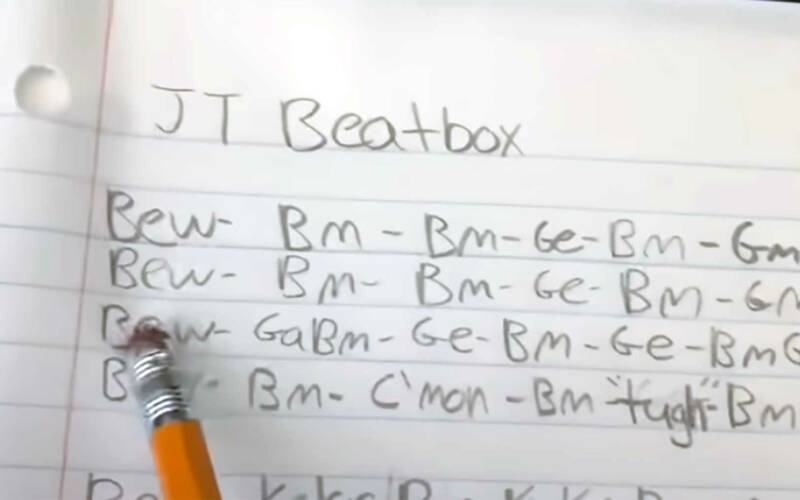 JT Beatbox
Bew- Bm - Bm- Ge- Bm - Gm
Bew- Bm- Bm- Ge- Bm -
Bew- GaBm- Ge- Bm - Ge -Bm
Bm- C'mon -Bm "tugh"- Bm